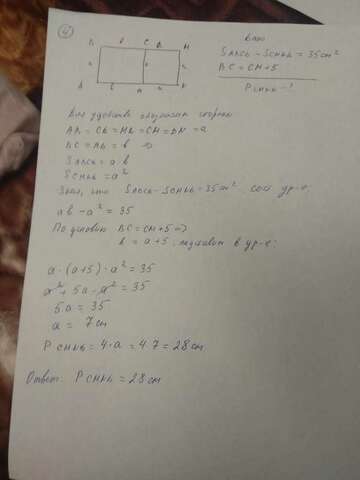 4
B b C a M
a a a
A b a K
Дано
S ABCD - S CMKD = 35 см²
BC = CM + 5
P CMKD - ?
Для удобства обозначим стороны
AB = CD = MK = CM = DK = a
BC = AD = b ⇒
S ABCD = a b
S CMKD = a²
Зная, что S ABCD - S CMKD = 35 см², сост ур-е:
ab - a² = 35
По условию BC = CM + 5 ⇒
b = a + 5, подставим в ур-е:
a · (a + 5) - a² = 35
a² + 5a - a² = 35
5a = 35
a = 7 см
P CMKD = 4 · a = 4 · 7 = 28 см
Ответ: P CMKD = 28 см